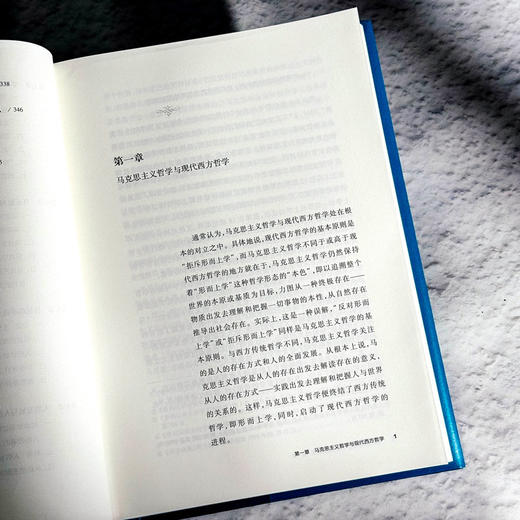 338
/ 346
第一章
马克思主义哲学与现代西方哲学
通常认为，马克思主义哲学与现代西方哲学处在根
本的对立之中。具体地说，现代西方哲学的基本原则是
“拒斥形而上学”，而马克思主义哲学不同于或高于现
代西方哲学的地方就在于，马克思主义哲学仍然保持
着“形而上学”这种哲学形态的“本色”，即以追溯整个
世界的本原或基质为目标，力图从一种终极存在——
物质出发去理解和把握一切事物的本性，从自然存在
推导出社会存在。实际上，这是一种误解，“反对形而
上学”或“拒斥形而上学”同样是马克思主义哲学的基
本原则。与西方传统哲学不同，马克思主义哲学关注
的是人的存在方式和人的全面发展。从根本上说，马
克思主义哲学是从人的存在出发去解读存在的意义，
从人的存在方式——实践出发去理解和把握人与世界
的关系的。这样，马克思主义哲学便终结了西方传统
哲学，即形而上学，同时，启动了现代西方哲学的
进程。
第一章 马克思主义哲学与现代西方哲学 1